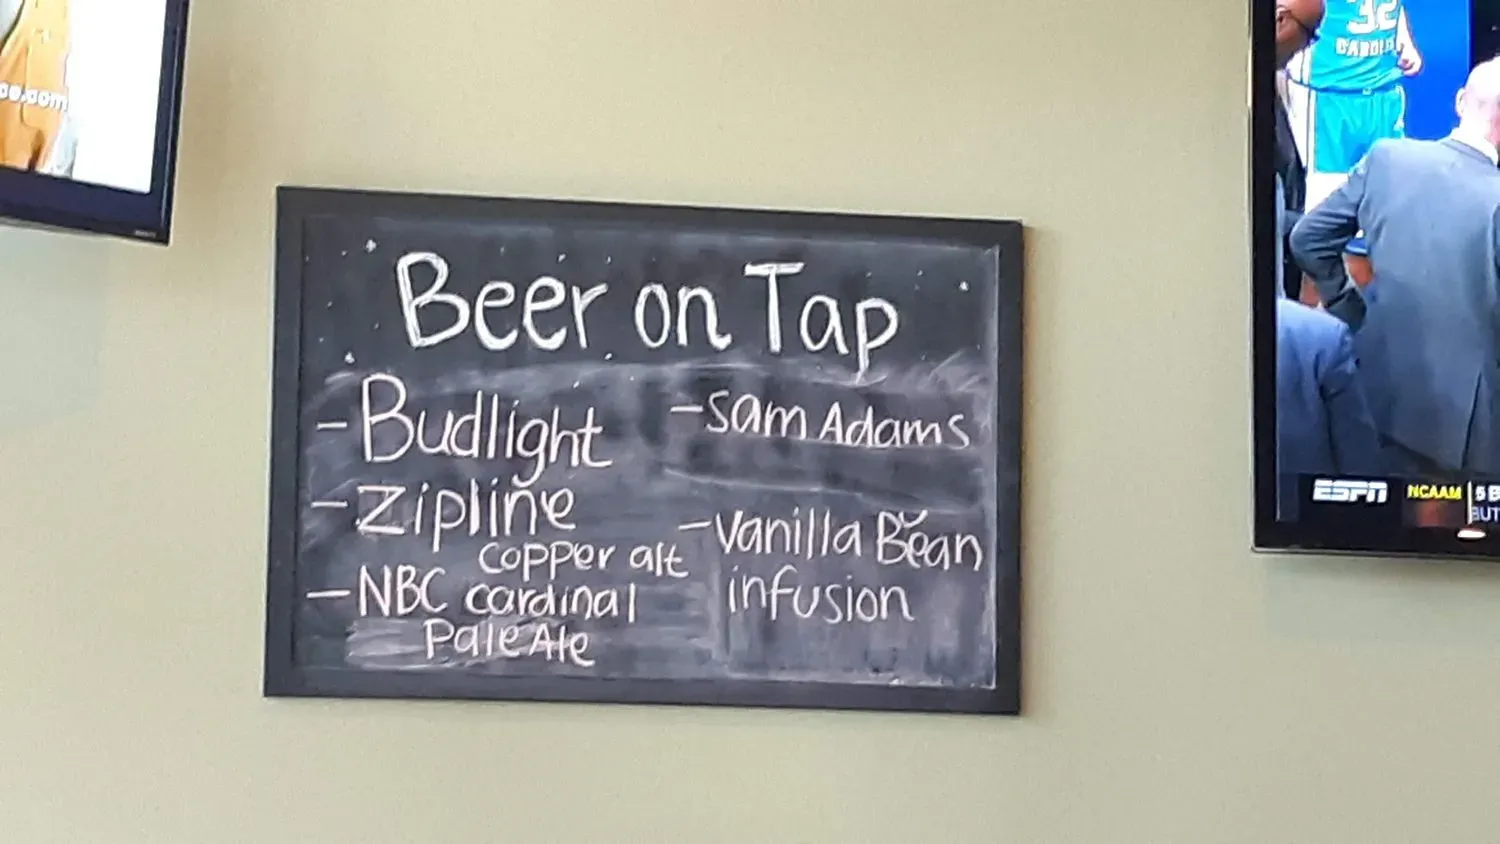 Beer on Tap
-Budlight
-Zipline
copper alt
-NBC cardinal
Pale Ale
-Sam Adams
-Vanilla Bean
infusion
32
ESPN
NCAAM